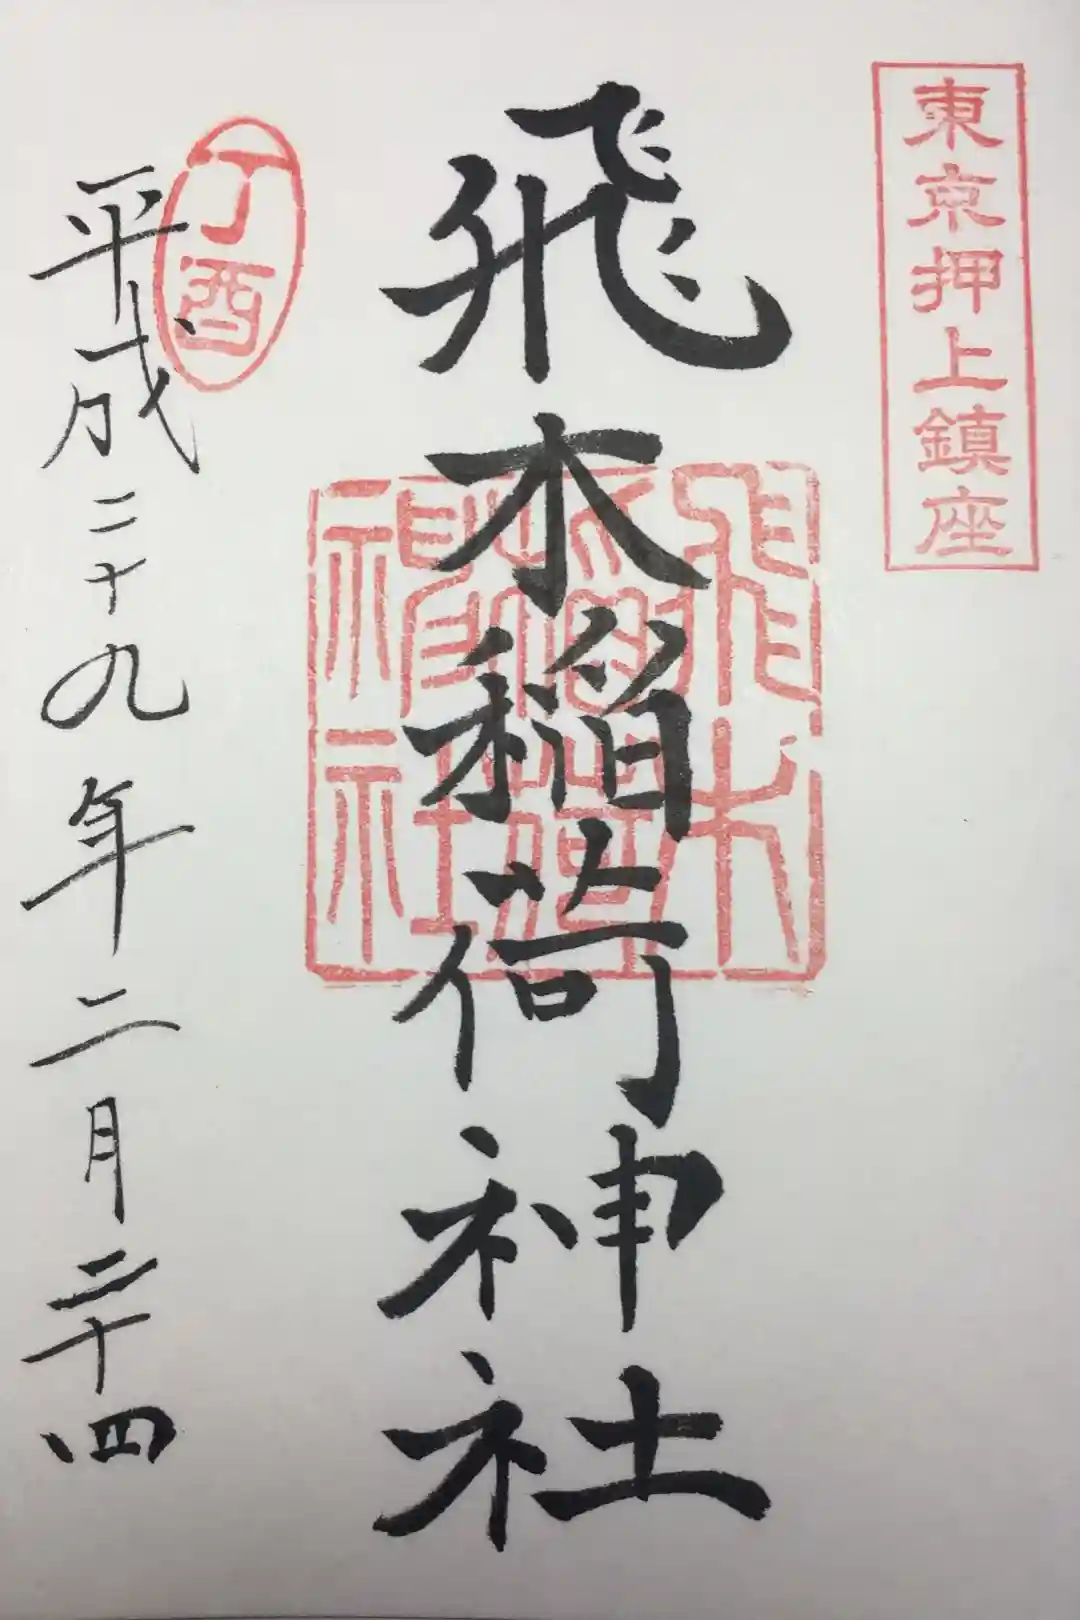 東京押上鎮座
飛木稲荷神社
飛木
稲荷
神社
丁酉
平成二十九年二月二十四